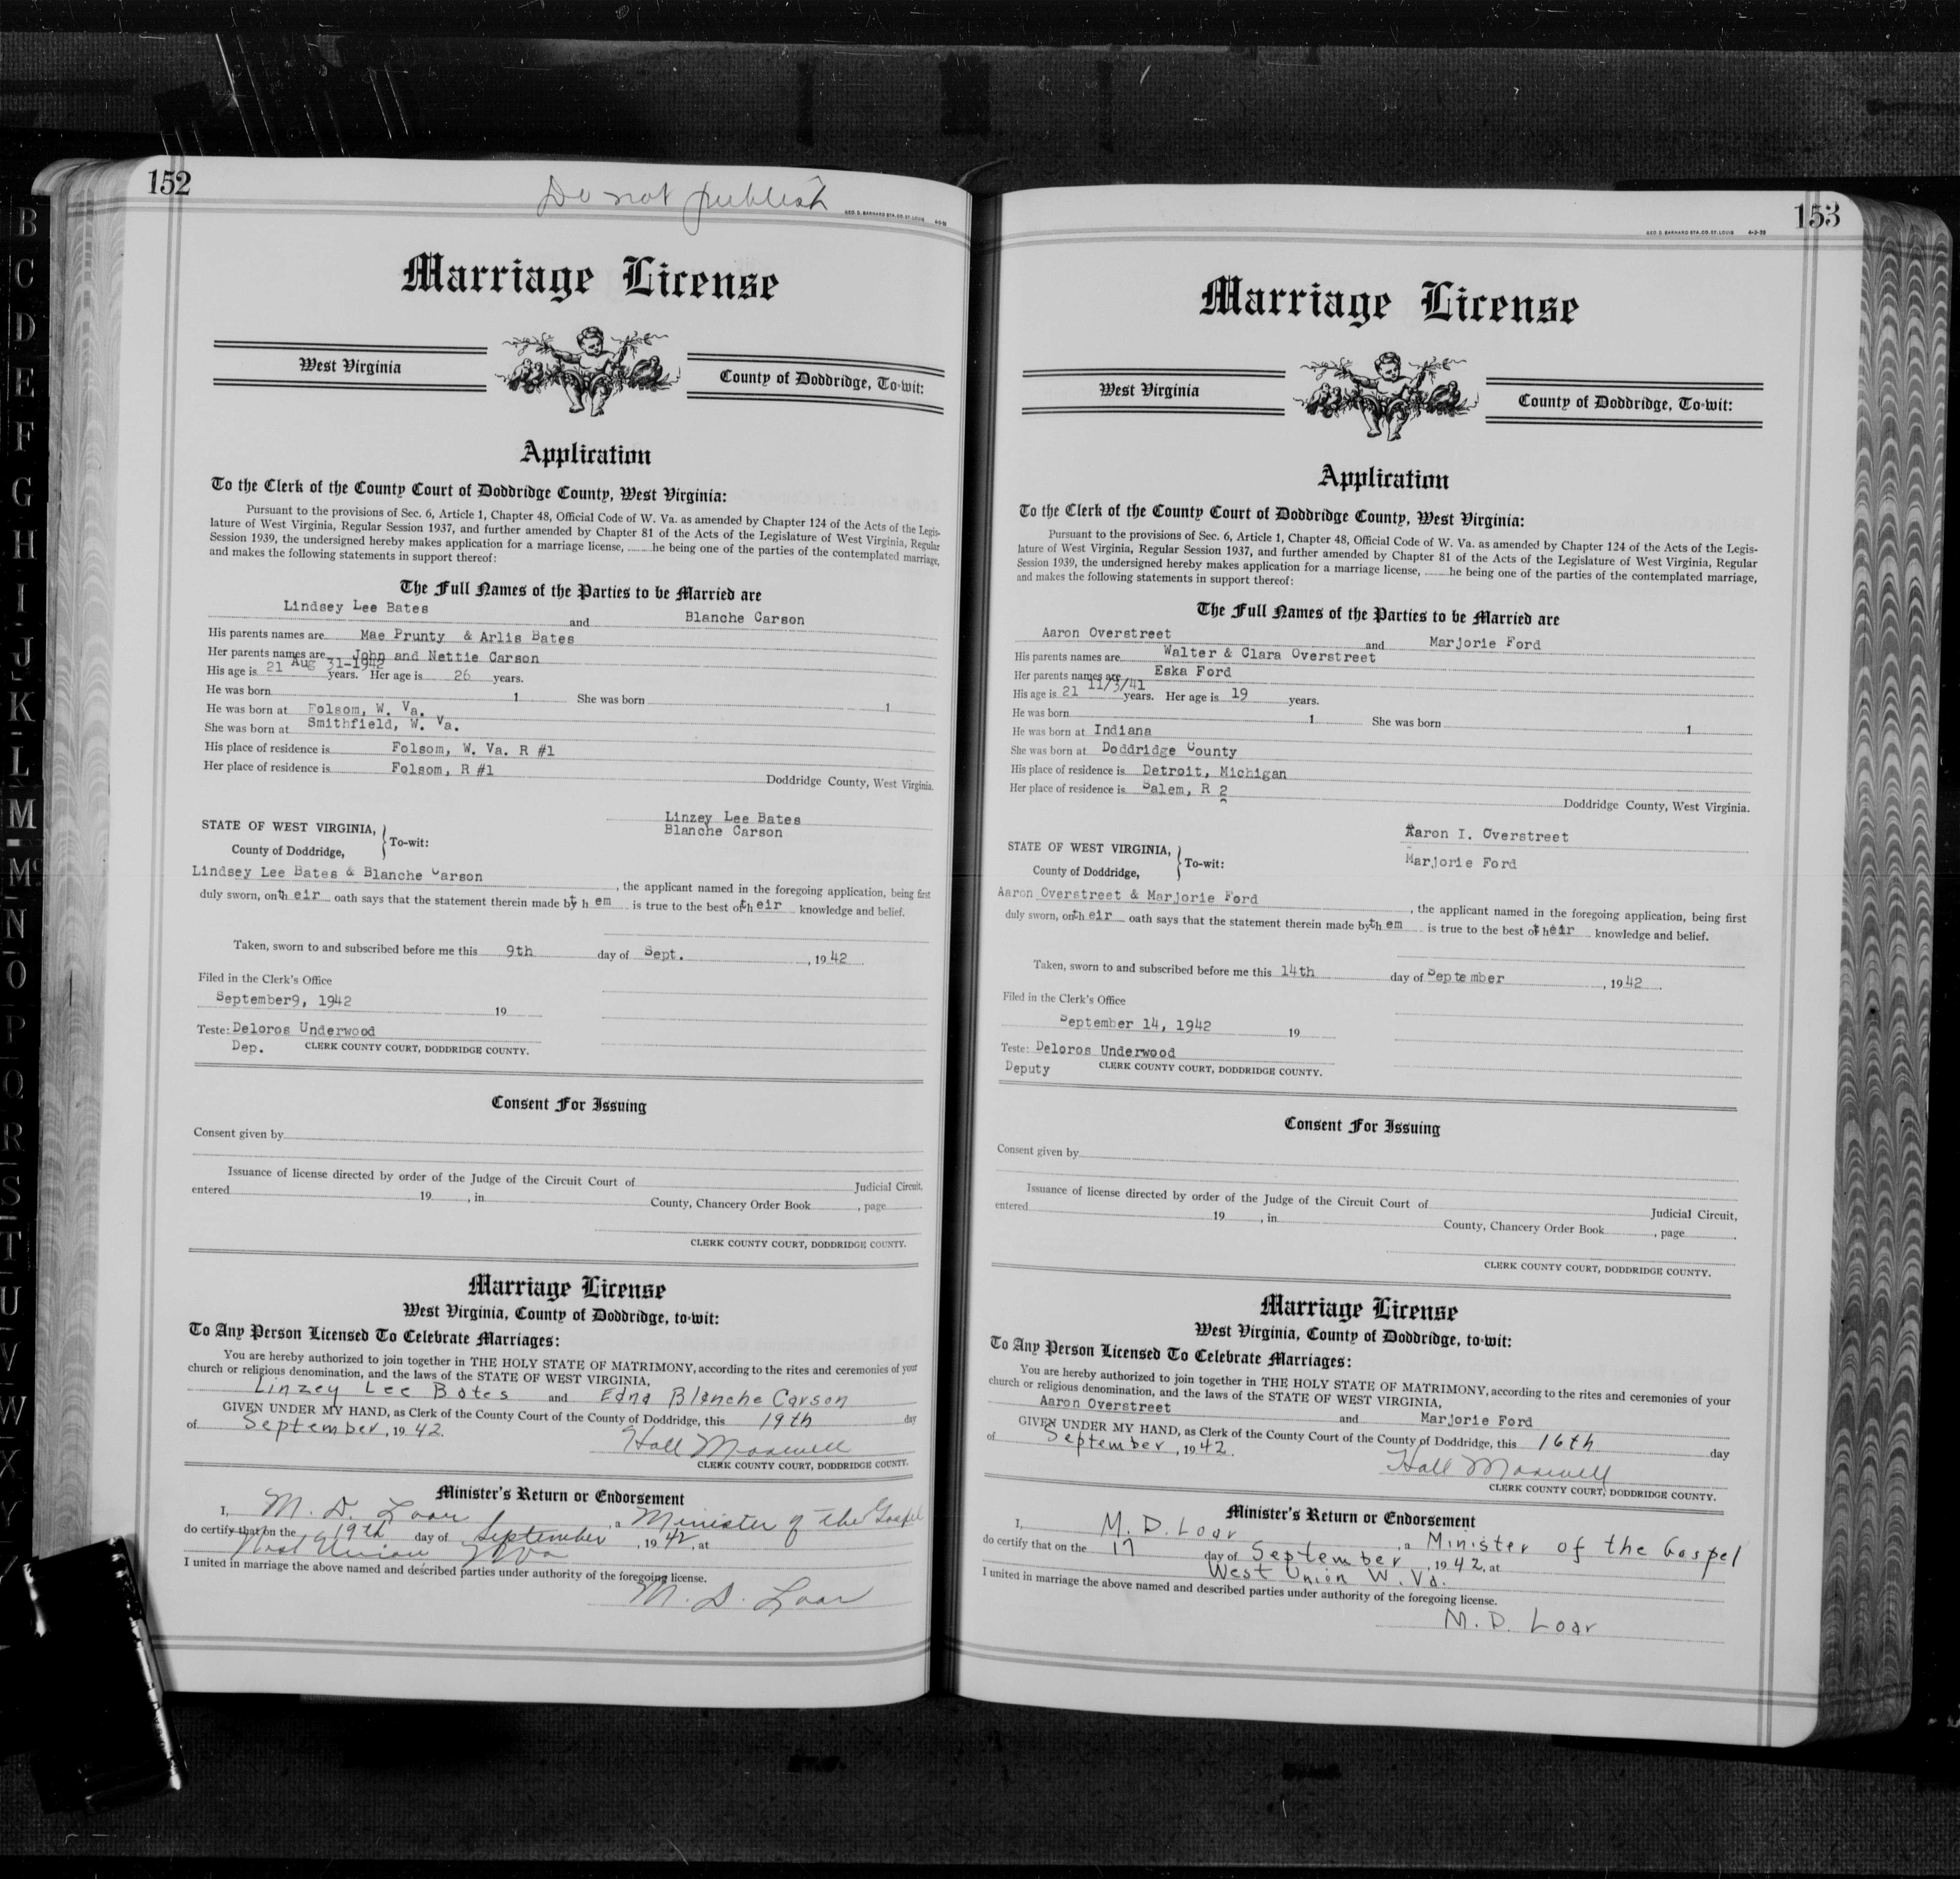 B
C
D
E
F
G
H
I
J
K
L
M
Mc
N
O
P
Q
R
S
T
U
V
W
X
Y
152
Do not publish
GEO. D. BARNARD STA. CO. ST. LOUIS
Marriage License
West Virginia
County of Doddridge, To-wit:
Application
To the Clerk of the County Court of Doddridge County, West Virginia:
Pursuant to the provisions of Sec. 6, Article 1, Chapter 48, Official Code of W. Va. as amended by Chapter 124 of the Acts of the Legis-
lature of West Virginia, Regular Session 1937, and further amended by Chapter 81 of the Acts of the Legislature of West Virginia, Regular
Session 1939, the undersigned hereby makes application for a marriage license, ........he being one of the parties of the contemplated marriage,
and makes the following statements in support thereof:
The Full Names of the Parties to be Married are
Lindsey Lee Bates and Blanche Carson
His parents names are Mae Prunty & Arlis Bates
Her parents names are John and Nettie Carson
His age is 21 Aug 31-1942 years. Her age is 26 years.
He was born 1 She was born 1
He was born at Folsom, W. Va.
She was born at Smithfield, W. Va.
His place of residence is Folsom, W. Va. R #1
Her place of residence is Folsom, R #1 Doddridge County, West Virginia.
Linzey Lee Bates
Blanche Carson
STATE OF WEST VIRGINIA,
County of Doddridge, } To-wit:
Lindsey Lee Bates & Blanche Carson , the applicant named in the foregoing application, being first
duly sworn, on their oath says that the statement therein made by them is true to the best of their knowledge and belief.
Taken, sworn to and subscribed before me this 9th day of Sept. , 1942
Filed in the Clerk's Office
September9, 1942 19
Teste: Deloros Underwood
Dep. CLERK COUNTY COURT, DODDRIDGE COUNTY.
Consent For Issuing
Consent given by
Issuance of license directed by order of the Judge of the Circuit Court of Judicial Circuit,
entered 19 , in County, Chancery Order Book , page
CLERK COUNTY COURT, DODDRIDGE COUNTY.
Marriage License
West Virginia, County of Doddridge, to-wit:
To Any Person Licensed To Celebrate Marriages:
You are hereby authorized to join together in THE HOLY STATE OF MATRIMONY, according to the rites and ceremonies of your
church or religious denomination, and the laws of the STATE OF WEST VIRGINIA,
Linzey Lee Bates and Edna Blanche Carson
GIVEN UNDER MY HAND, as Clerk of the County Court of the County of Doddridge, this 19th day
of September, 1942.
Hall Maxwell
CLERK COUNTY COURT, DODDRIDGE COUNTY.
Minister's Return or Endorsement
I, M. D. Loar , a Minister of the Gospel
do certify that on the 19th day of September , 1942, at
West Union W Va
I united in marriage the above named and described parties under authority of the foregoing license.
M. D. Loar
153
GEO. D. BARNARD STA. CO. ST. LOUIS 4-3-39
Marriage License
West Virginia
County of Doddridge, To-wit:
Application
To the Clerk of the County Court of Doddridge County, West Virginia:
Pursuant to the provisions of Sec. 6, Article 1, Chapter 48, Official Code of W. Va. as amended by Chapter 124 of the Acts of the Legis-
lature of West Virginia, Regular Session 1937, and further amended by Chapter 81 of the Acts of the Legislature of West Virginia, Regular
Session 1939, the undersigned hereby makes application for a marriage license, ........he being one of the parties of the contemplated marriage,
and makes the following statements in support thereof:
The Full Names of the Parties to be Married are
Aaron Overstreet and Marjorie Ford
His parents names are Walter & Clara Overstreet
Her parents names are Eska Ford
His age is 21 11/3/41 years. Her age is 19 years.
He was born 1 She was born 1
He was born at Indiana
She was born at Doddridge County
His place of residence is Detroit, Michigan
Her place of residence is Salem, R 2 Doddridge County, West Virginia.
Aaron I. Overstreet
Marjorie Ford
STATE OF WEST VIRGINIA,
County of Doddridge, } To-wit:
Aaron Overstreet & Marjorie Ford , the applicant named in the foregoing application, being first
duly sworn, on their oath says that the statement therein made by them is true to the best of their knowledge and belief.
Taken, sworn to and subscribed before me this 14th day of September , 1942
Filed in the Clerk's Office
September 14, 1942 19
Teste: Deloros Underwood
Deputy CLERK COUNTY COURT, DODDRIDGE COUNTY.
Consent For Issuing
Consent given by
Issuance of license directed by order of the Judge of the Circuit Court of Judicial Circuit,
entered 19 , in County, Chancery Order Book , page
CLERK COUNTY COURT, DODDRIDGE COUNTY.
Marriage License
West Virginia, County of Doddridge, to-wit:
To Any Person Licensed To Celebrate Marriages:
You are hereby authorized to join together in THE HOLY STATE OF MATRIMONY, according to the rites and ceremonies of your
church or religious denomination, and the laws of the STATE OF WEST VIRGINIA,
Aaron Overstreet and Marjorie Ford
GIVEN UNDER MY HAND, as Clerk of the County Court of the County of Doddridge, this 16th day
of September, 1942.
Hall Maxwell
CLERK COUNTY COURT, DODDRIDGE COUNTY.
Minister's Return or Endorsement
I, M. D. Loar , a Minister of the Gospel
do certify that on the 17 day of September , 1942, at
West Union W. Va.
I united in marriage the above named and described parties under authority of the foregoing license.
M. D. Loar